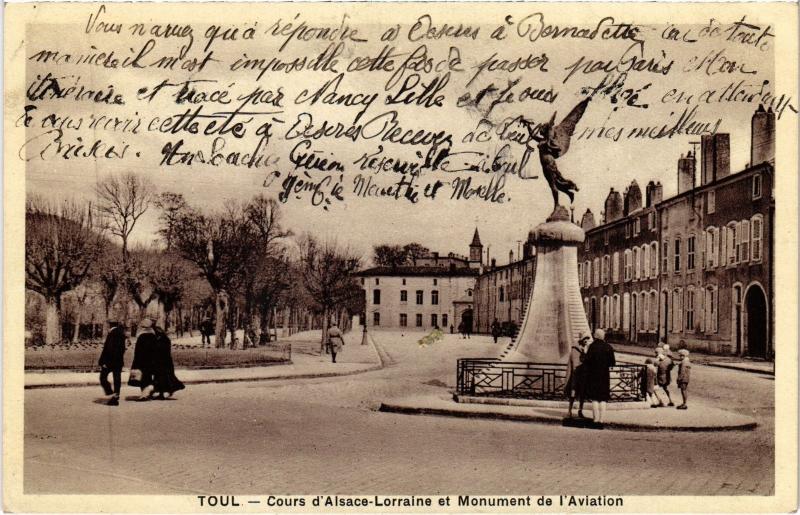 Vous n'avez qu'à répondre à Oeseres à Bernadette car de toute
manière il m'est impossible cette fois de passer par Paris Mon
itinéraire et tracé par Nancy Lille et en attendant
à vous revoir cette été à Oeseres Recevez de tous mes meilleurs
Baisers.
Génie réserviste à Toul
Génie Meurthe et Moselle.
TOUL. — Cours d'Alsace-Lorraine et Monument de l'Aviation